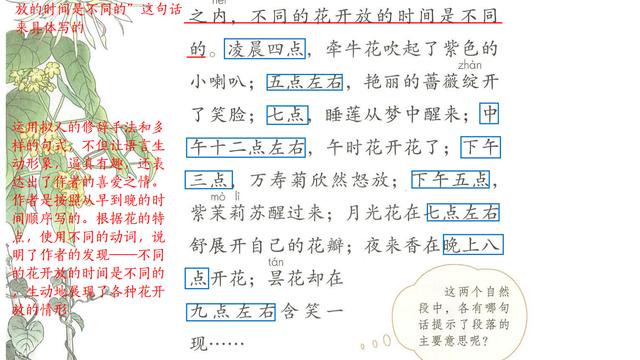 放的时间是不同的”这句话
来具体写的
运用拟人的修辞手法和多
样的句式，不但让语言生
动形象、逼真有趣，还表
达出了作者的喜爱之情。
作者是按照从早到晚的时
间顺序写的。根据花的特
点，使用不同的动词，说
明了作者的发现——不同
的花开放的时间是不同的
，生动地展现了各种花开
放的情形
之内，不同的花开放的时间是不同
的。凌晨四点，牵牛花吹起了紫色的
zhàn
小喇叭；五点左右，艳丽的蔷薇绽开
了笑脸；七点，睡莲从梦中醒来；中
午十二点左右，午时花开花了；下午
三点，万寿菊欣然怒放；下午五点，
mò lì
紫茉莉苏醒过来；月光花在七点左右
舒展开自己的花瓣；夜来香在晚上八
tán
点开花；昙花却在
九点左右含笑一
现……
这两个自然
段中，各有哪句
话提示了段落的
主要意思呢？